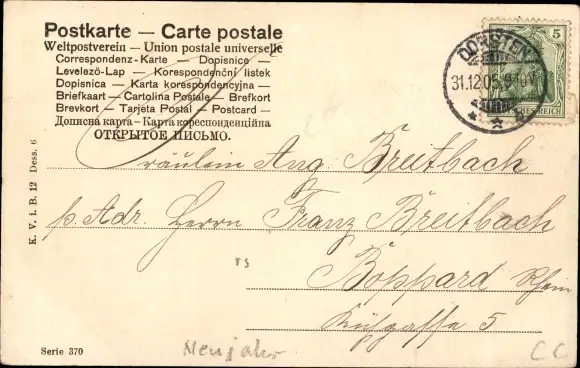 Postkarte — Carte postale
Weltpostverein — Union postale universelle
Correspondenz-Karte — Dopisnice —
Levelező-Lap — Korespondenční lístek
Dopisnica — Karta korespondencyjna —
Briefkaart — Cartolina Postale — Brefkort
Brevkort — Tarjeta Postal — Postcard —
Дописна карта — Карта кореспонденційна
ОТКРЫТОЕ ПИСЬМО.
5
DORSTEN
31.12.05.9-10V
Fräulein Aug. Breitbach
p. Adr. Herrn Franz Breitbach
rs
Boppard Rhein
5
K. V. i. B. 12 Dess. 6
Serie 370
Neujahr
CC